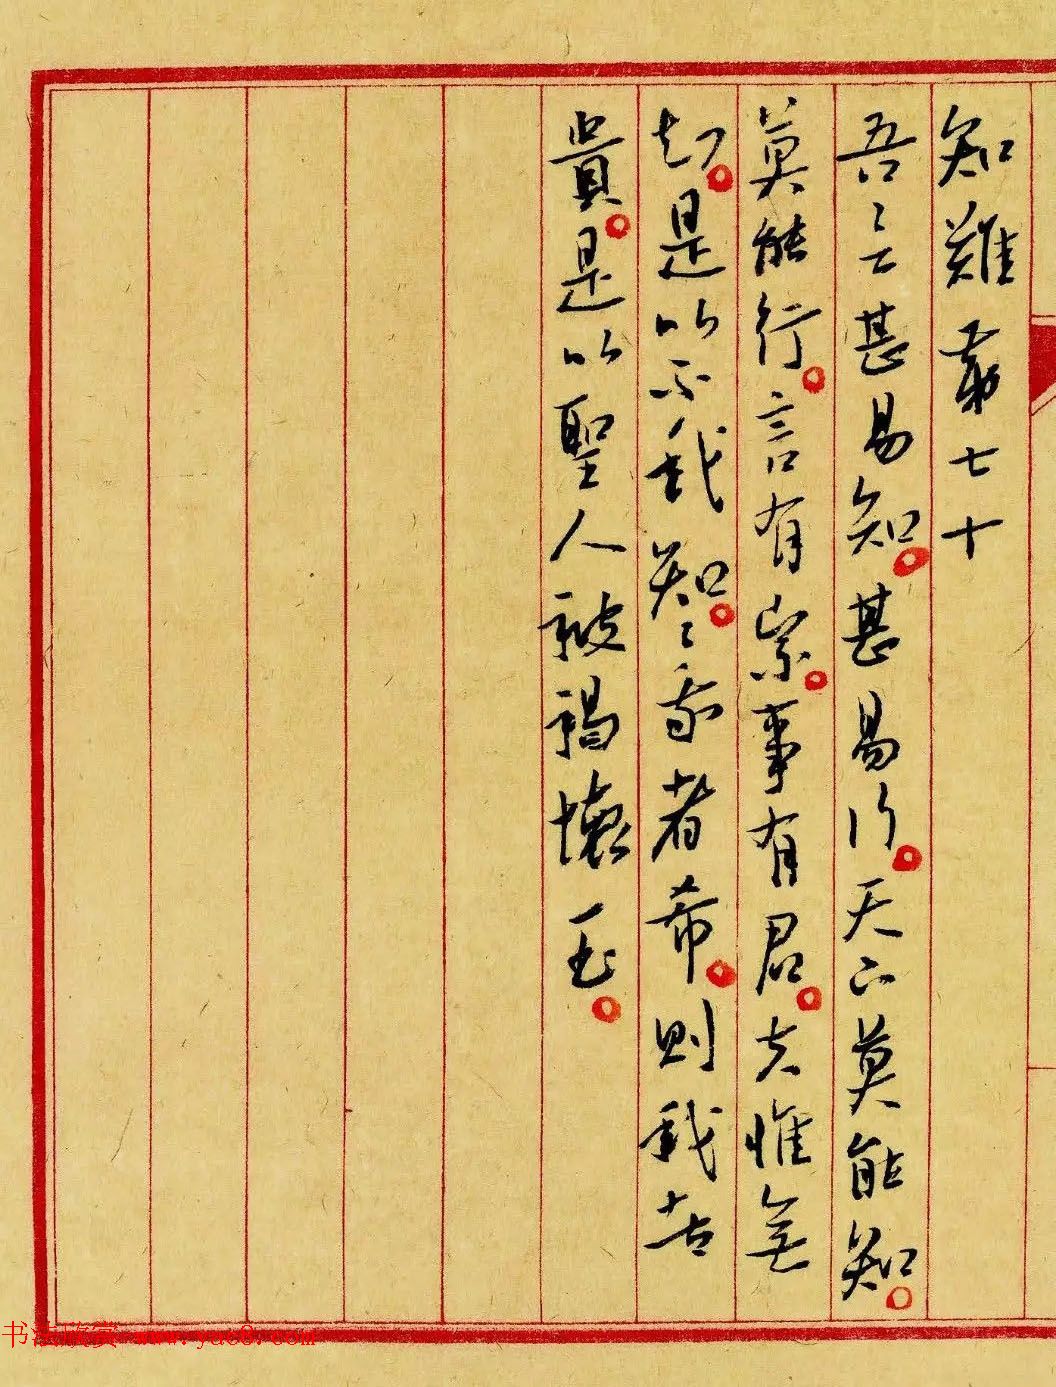 知難第七十
吾言甚易知。甚易行。天下莫能知。
莫能行。言有宗。事有君。夫惟無
知。是以不我知。〻我者希。則我者
貴。是以聖人被褐懷玉。
书法欣赏 www.yac8.com